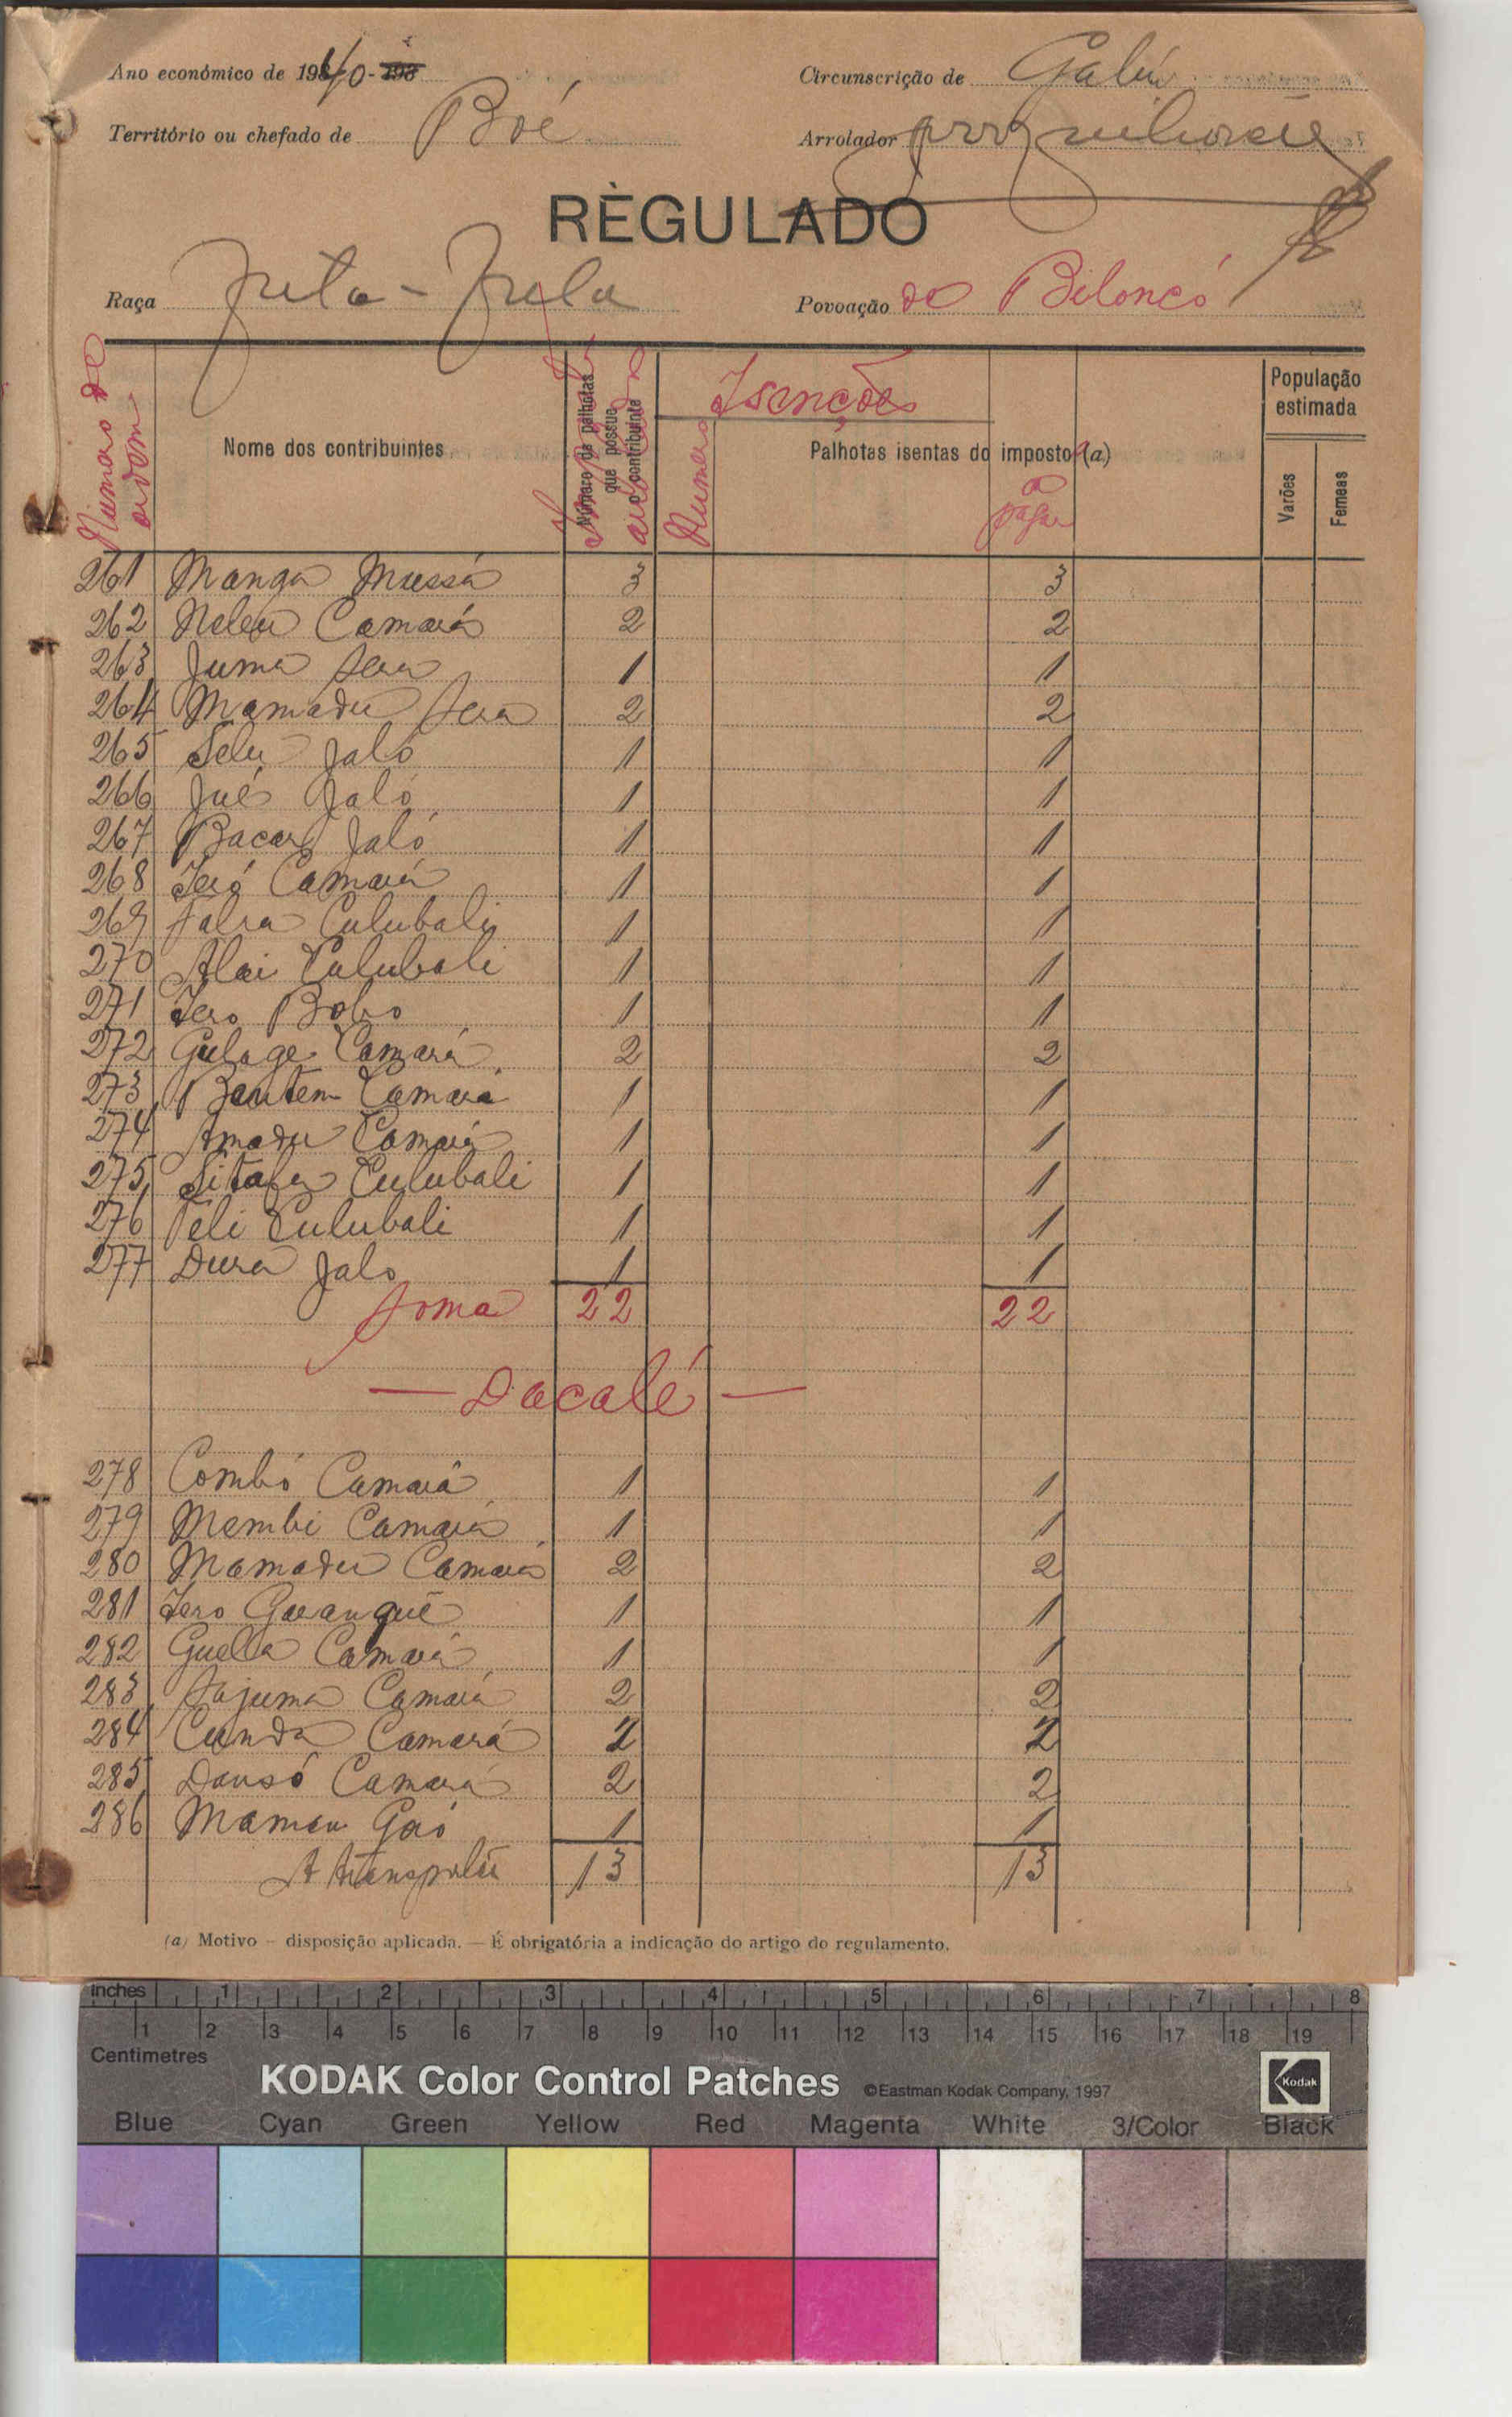 Ano económico de 1940-193
Circunscrição de Gabú
Território ou chefado de Boé
Arrolador
RÈGULADO
Raça Futa-Fula
Povoação de Biloncó
Numero de ordem
Nome dos contribuintes
Número de palhotas que possue o contribuinte
Isenções
Numero
Palhotas isentas do imposto (a)
a pagar
População estimada
Varões
Femeas
261 Manga Mussá 3 3
262 Camará 2 2
263 Juma 1 1
264 Mamadu 2 2
265 Selu Jaló 1 1
266 Jaló 1 1
267 Bacar Jaló 1 1
268 Camará 1 1
269 Culubali 1 1
270 Alai Culubali 1 1
271 Iero Bobo 1 1
272 Gulage Camará 2 2
273 Camará 1 1
274 Amadu Camará 1 1
275 Sitafa Culubali 1 1
276 Culubali 1 1
277 Dura Jalo 1 1
Soma 22 22
— Dacalé —
278 Combó Camará 1 1
279 Membi Camará 1 1
280 Mamadu Camará 2 2
281 Iero 1 1
282 Guella Camará 1 1
283 Sajuma Camará 2 2
284 Cunda Camará 2 2
285 Dansó Camará 2 2
286 1 1
A transportar 13 13
(a) Motivo – disposição aplicada. — É obrigatória a indicação do artigo do regulamento.
Inches 1 2 3 4 5 6 7 8
1 2 3 4 5 6 7 8 9 10 11 12 13 14 15 16 17 18 19
Centimetres
KODAK Color Control Patches ©Eastman Kodak Company, 1997 Kodak
Blue Cyan Green Yellow Red Magenta White 3/Color Black